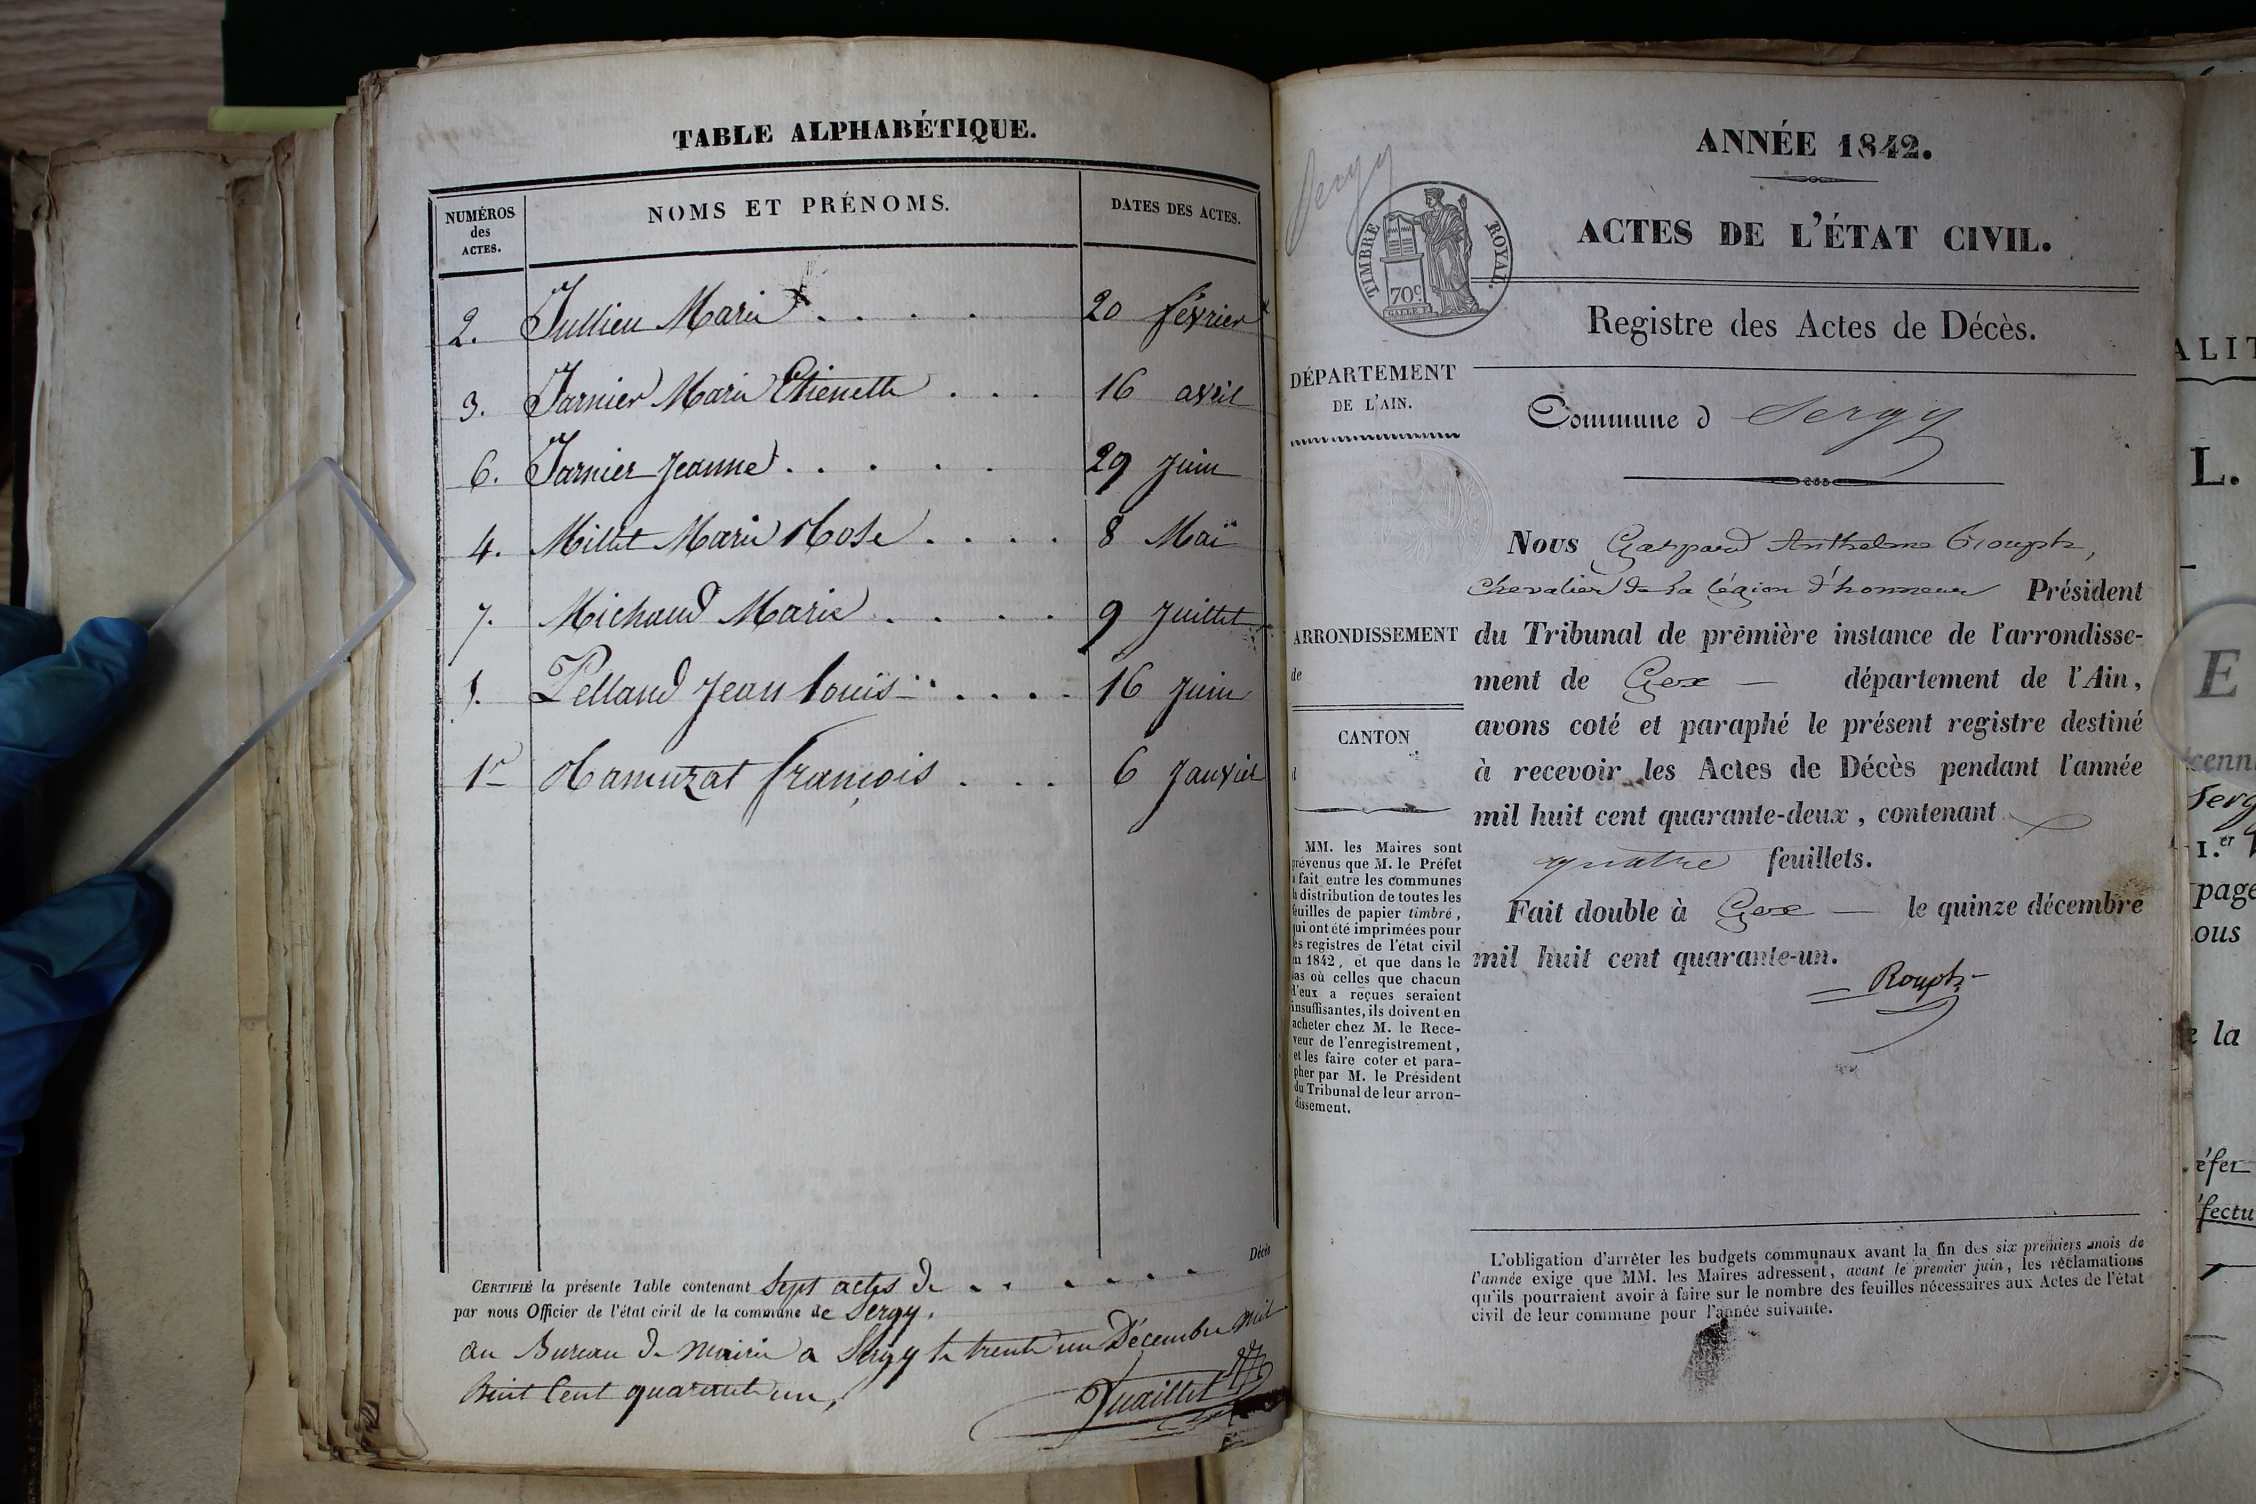 TABLE ALPHABÉTIQUE.
NUMÉROS des ACTES. NOMS ET PRÉNOMS. DATES DES ACTES.
2. Jullien Marie . . . . 20 février
3. Jarnier Marie Etienette . . . 16 avril
6. Jarnier Jeanne . . . . . 29 Juin
4. Millet Marie Rose . . . . 8 Maï
7. Michaud Marie . . . . 9 Juillet
5. Pelland Jean Louis . . . . 16 Juin
1er Ramuzat françois . . . 6 Janvier
Décès
CERTIFIÉ la présente Table contenant Sept actes de . . . . . . .
par nous Officier de l'état civil de la commune de Sergy.
au Bureau de Mairie a Sergy le trente un Décembre mil
huit Cent quarante un,
Tuaillet
Sergy
TIMBRE ROYAL.
70c
ANNÉE 1842.
ACTES DE L'ÉTAT CIVIL.
Registre des Actes de Décès.
DÉPARTEMENT
DE L'AIN.
Commune d Sergy
ARRONDISSEMENT
de
CANTON
d
MM. les Maires sont
prévenus que M. le Préfet
a fait entre les communes
la distribution de toutes les
feuilles de papier timbré,
qui ont été imprimées pour
les registres de l'état civil
en 1842, et que dans le
cas où celles que chacun
d'eux a reçues seraient
insuffisantes, ils doivent en
acheter chez M. le Rece-
veur de l'enregistrement,
et les faire coter et para-
pher par M. le Président
du Tribunal de leur arron-
dissement.
Nous Gaspard Anthelme Girod,
Chevalier de la légion d'honneur Président
du Tribunal de première instance de l'arrondisse-
ment de Gex — département de l'Ain,
avons coté et paraphé le présent registre destiné
à recevoir les Actes de Décès pendant l'année
mil huit cent quarante-deux, contenant
quatre feuillets.
Fait double à Gex — le quinze décembre
mil huit cent quarante-un.
L'obligation d'arrêter les budgets communaux avant la fin des six premiers mois de
l'année exige que MM. les Maires adressent, avant le premier juin, les réclamations
qu'ils pourraient avoir à faire sur le nombre des feuilles nécessaires aux Actes de l'état
civil de leur commune pour l'année suivante.
ALIT
L.
E
cenn
Serg
1.er
page
ous
la
éfer
fectu